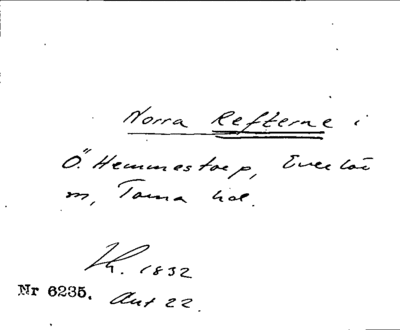 Norra Refterne i
Ö. Hemmestorp, Everlöv
m, Torna hd.
Lh. 1832
Nr 6235. Akt 22.